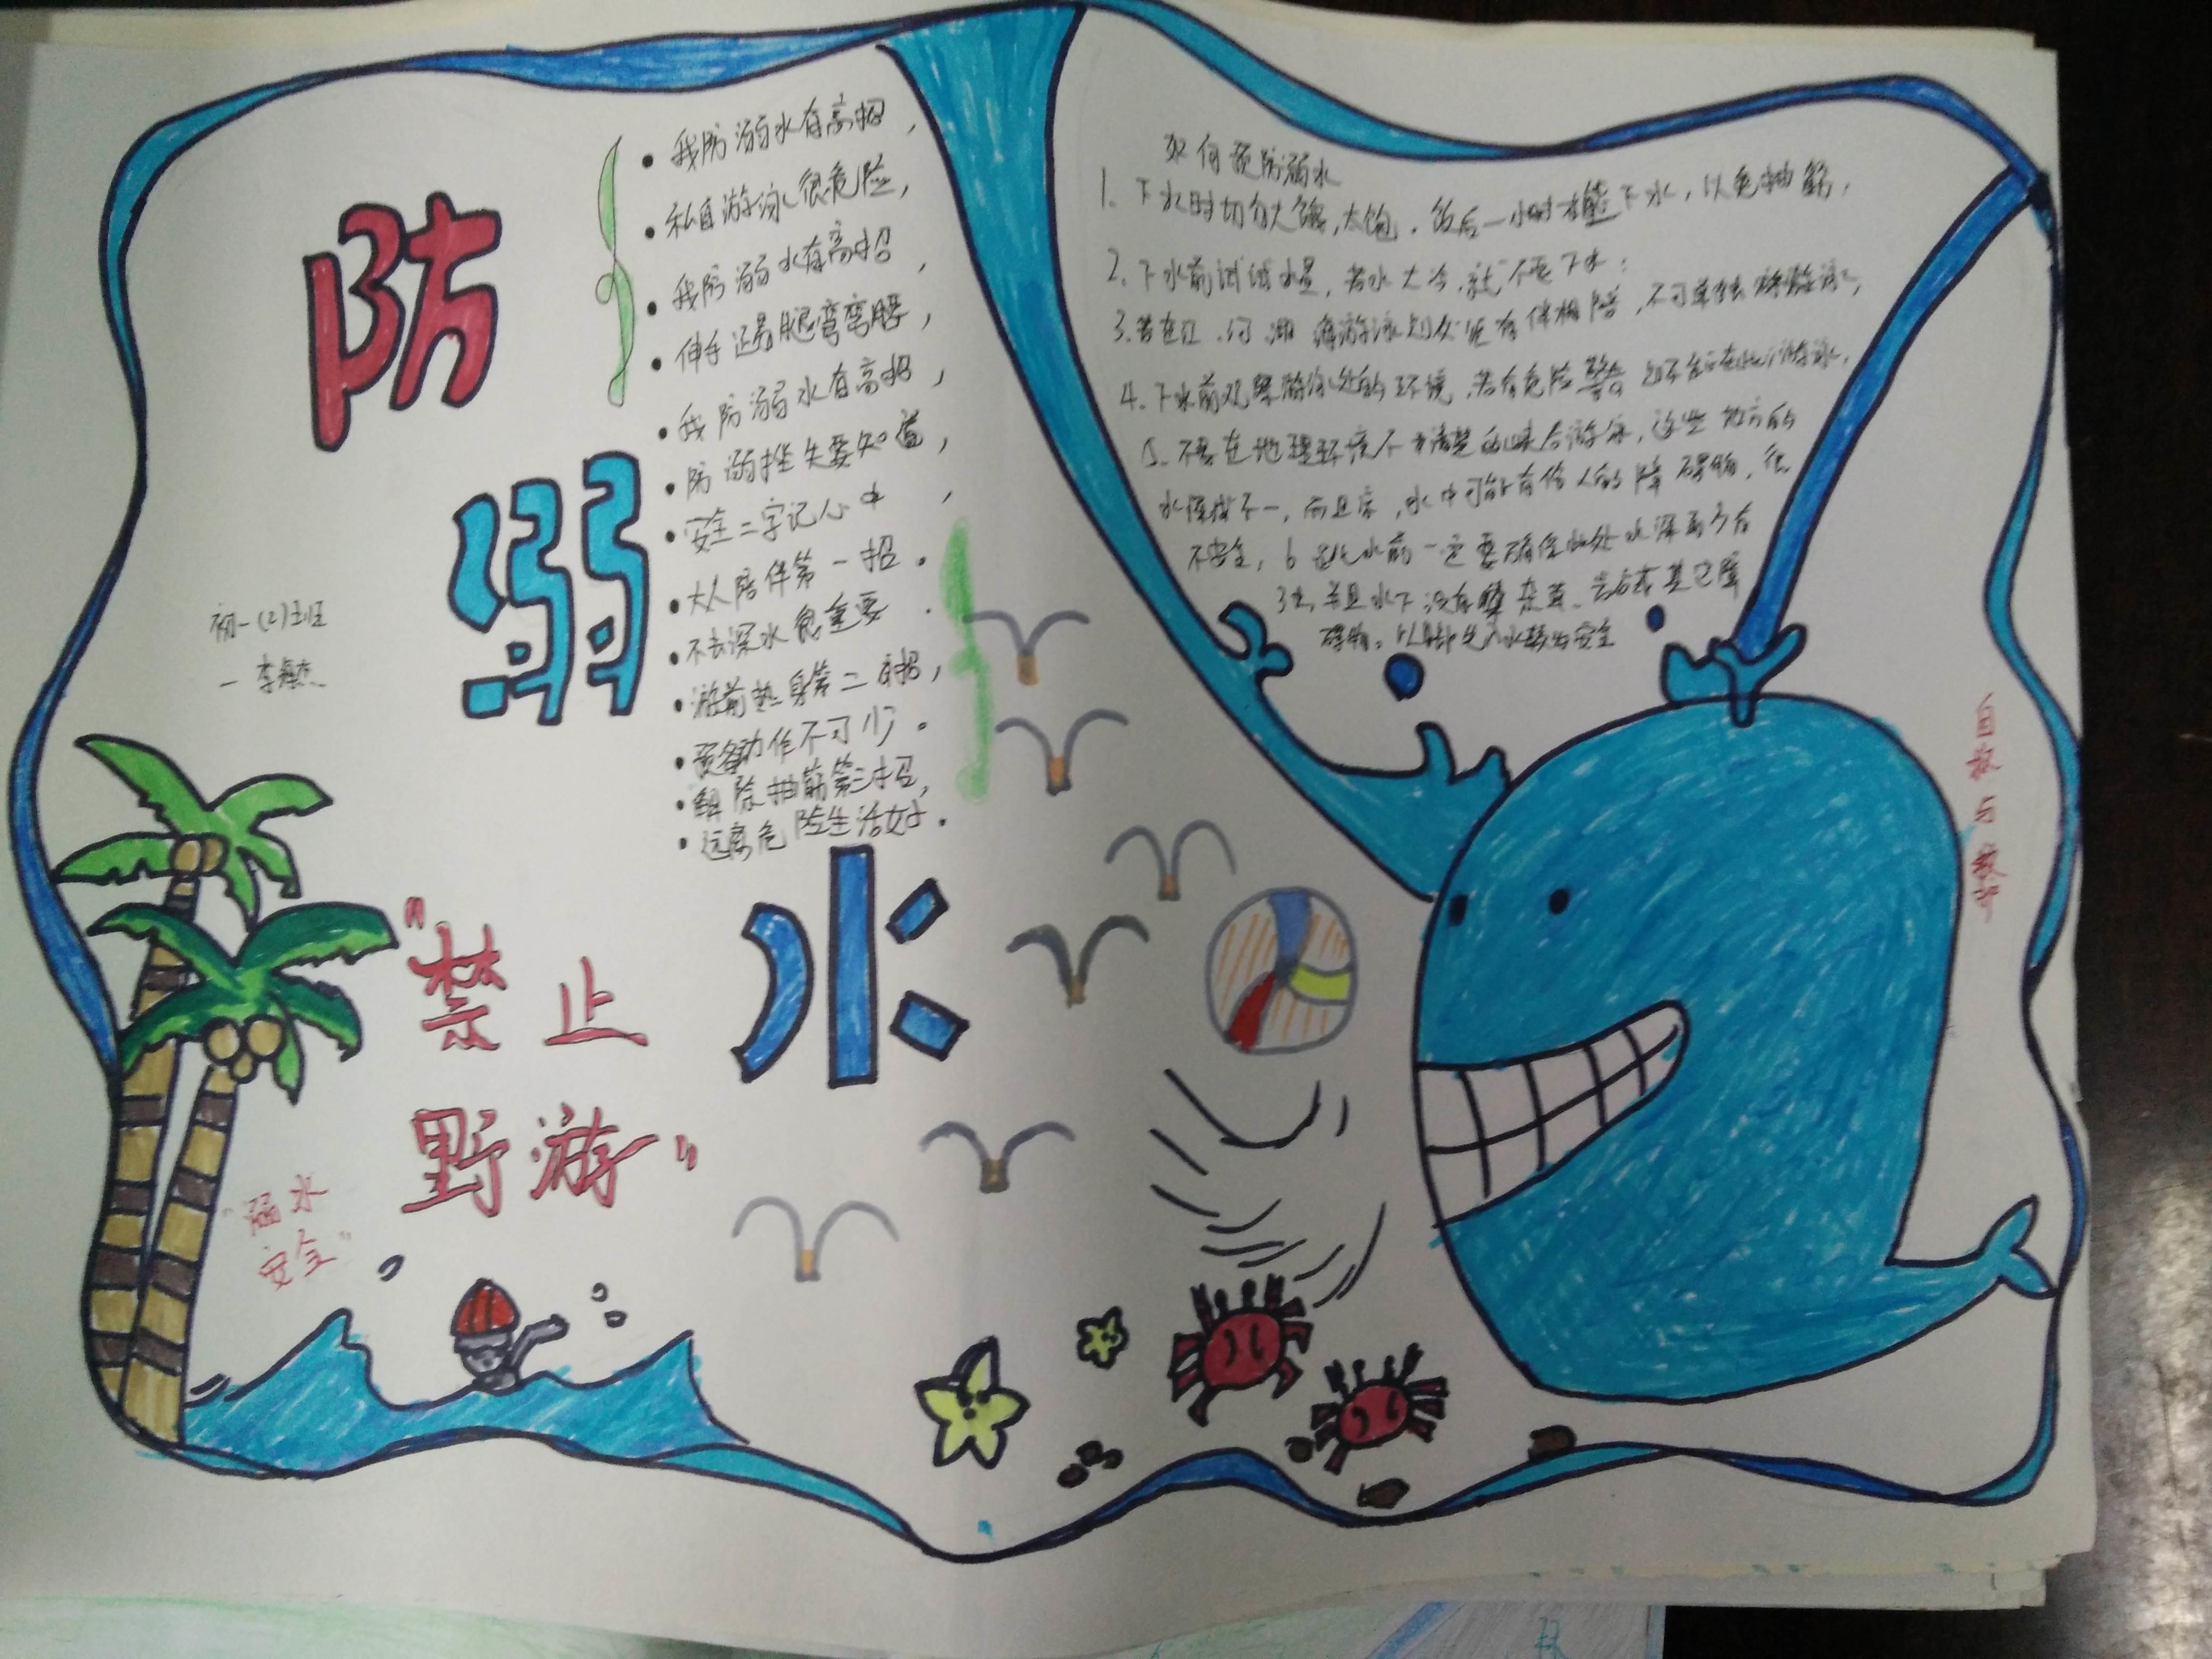 防
溺
水
初一(2)班
我防溺水有高招，
私自游泳很危险，
我防溺水有高招，
伸手踢腿弯弯腰，
我防溺水有高招，
防溺措失要知道，
安全二字记心中，
大人陪伴第一招．
不去深水很重要．
游前热身第二招，
预备动作不可少。
解除抽筋第三招，
远离危险生活好．
如何预防溺水
1. 下水时切勿太饿，太饱．饭后一小时才能下水，以免抽筋，
2. 下水前试试水温，若水太冷．就不要下水；
3. 若在江．河．湖．海游泳则必须有伴相陪，不可单独游泳，
4. 下水前观察游泳处的环境．若有危险警告则不能在此游泳，
5. 不要在地理环境不清楚的峡谷游泳，这些地方的
水深浅不一，而且凉，水中可能有伤人的障碍物，很
不安全，6 跳水前一定要确保此处水深至少有
3米，并且水下没有杂草．岩石或其它障
碍物。以脚先入水较为安全
"禁止
野游"
"溺水
安全"